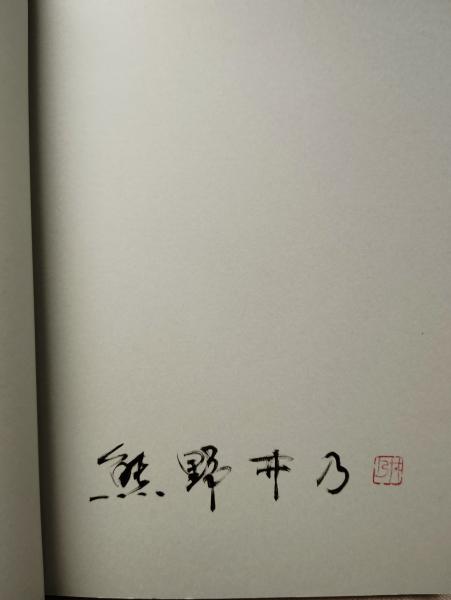 熊野井乃